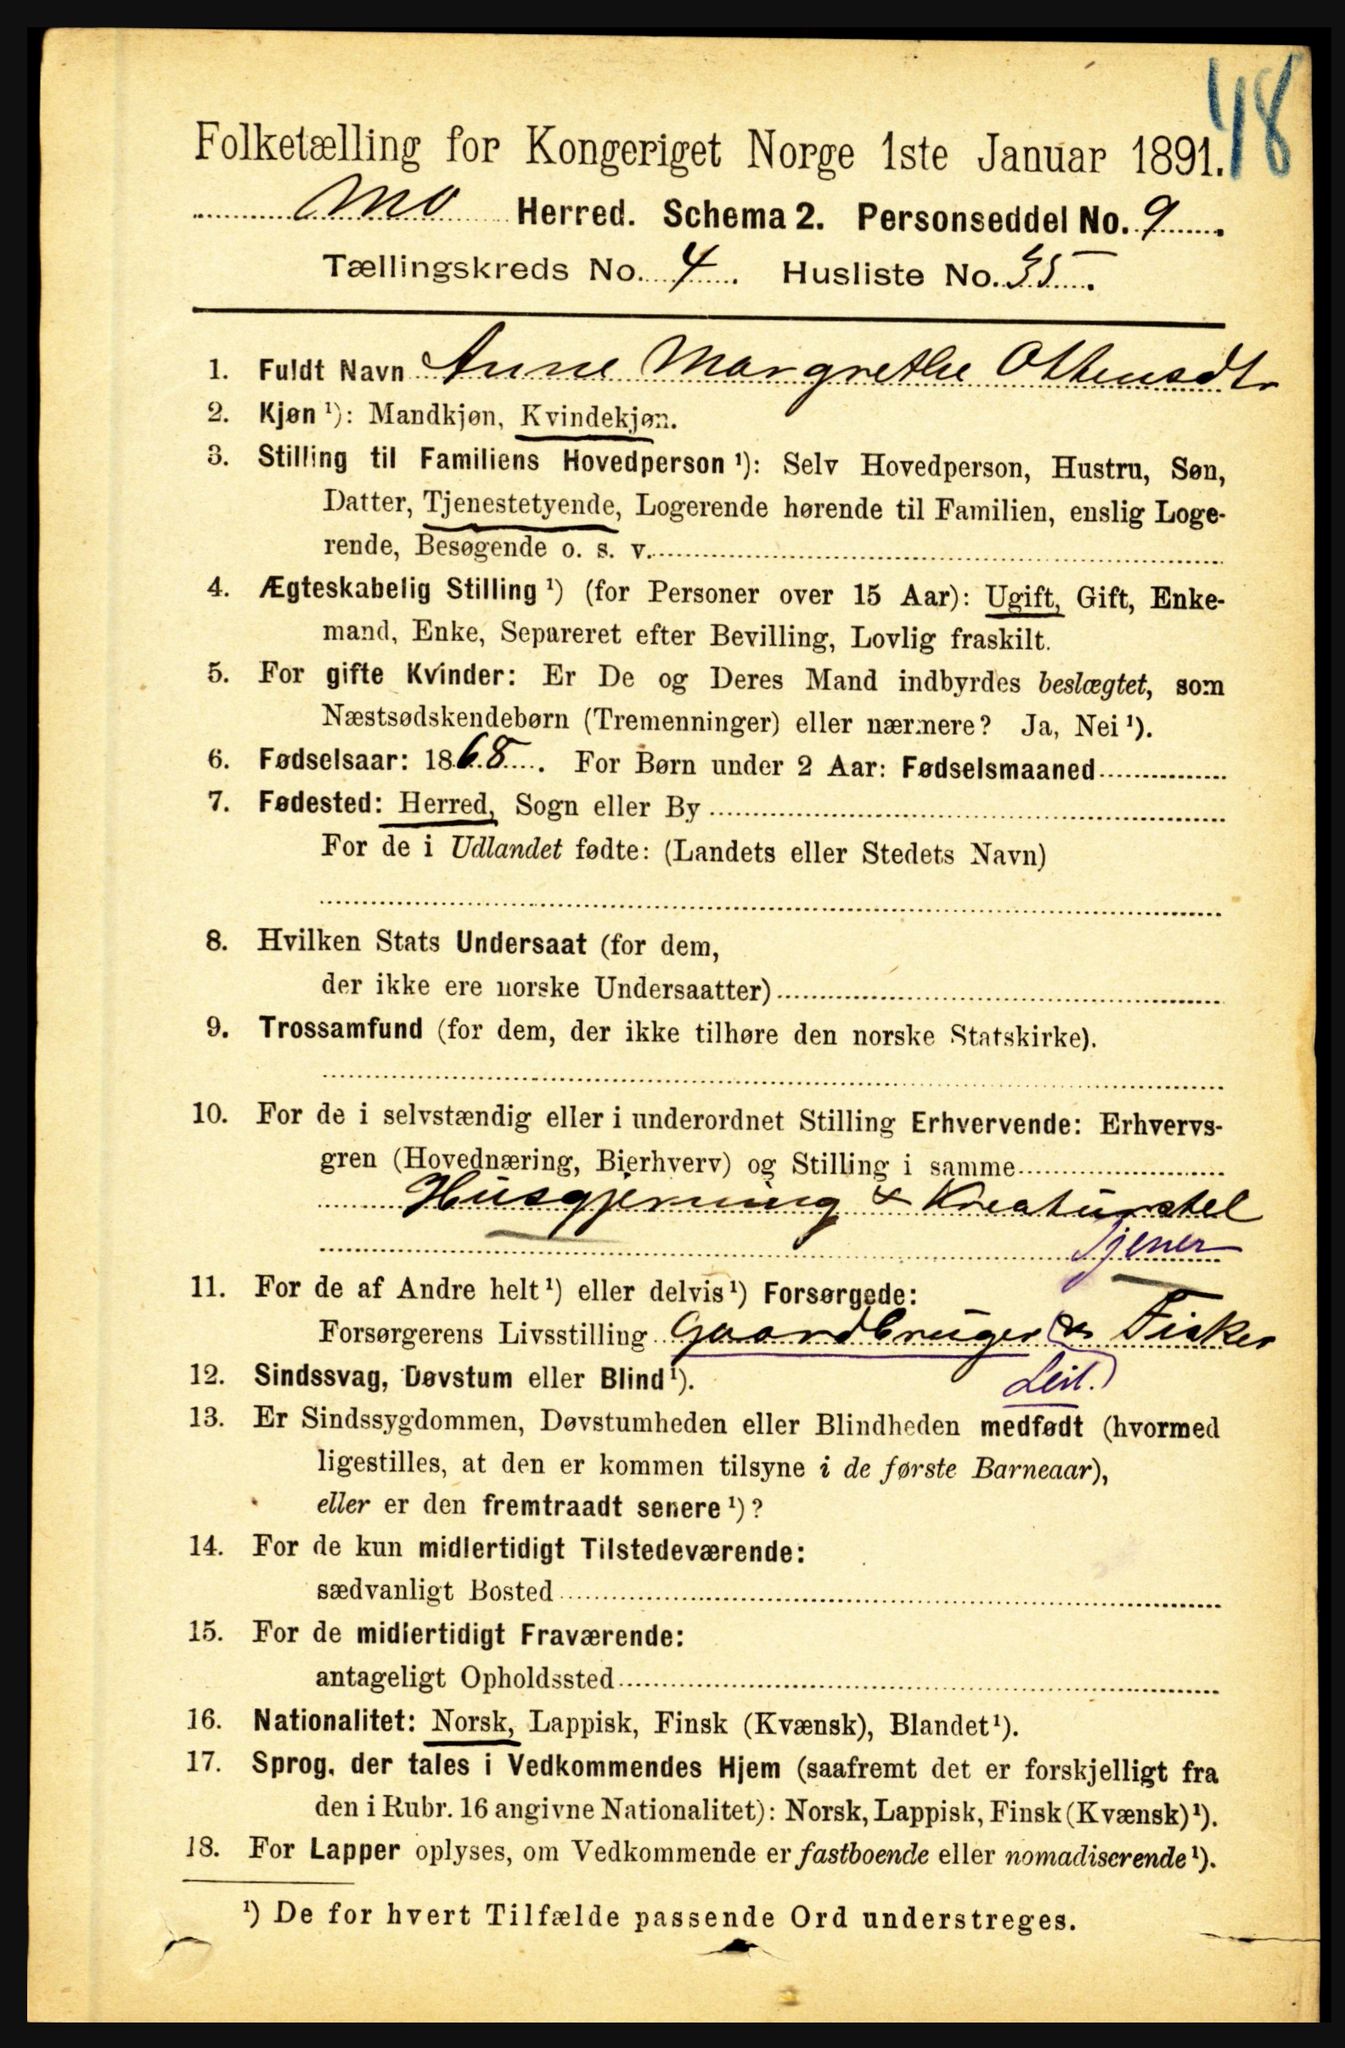 48
Folketælling for Kongeriget Norge 1ste Januar 1891.
Mo Herred. Schema 2. Personseddel No. 9.
Tællingskreds No. 4. Husliste No. 35.
1. Fuldt Navn Anne Margrethe Ottensdtr
2. Kjøn ¹): Mandkjøn, Kvindekjøn.
3. Stilling til Familiens Hovedperson ¹): Selv Hovedperson, Hustru, Søn,
Datter, Tjenestetyende, Logerende hørende til Familien, enslig Loge-
rende, Besøgende o. s. v.
4. Ægteskabelig Stilling ¹) (for Personer over 15 Aar): Ugift, Gift, Enke-
mand, Enke, Separeret efter Bevilling, Lovlig fraskilt.
5. For gifte Kvinder: Er De og Deres Mand indbyrdes beslægtet, som
Næstsødskendebørn (Tremenninger) eller nærmere? Ja, Nei ¹).
6. Fødselsaar: 1868. For Børn under 2 Aar: Fødselsmaaned
7. Fødested: Herred, Sogn eller By
For de i Udlandet fødte: (Landets eller Stedets Navn)
8. Hvilken Stats Undersaat (for dem,
der ikke ere norske Undersaatter)
9. Trossamfund (for dem, der ikke tilhøre den norske Statskirke).
10. For de i selvstændig eller i underordnet Stilling Erhvervende: Erhvervs-
gren (Hovednæring, Bierhverv) og Stilling i samme
Husgjerning & Kreaturstel
Tjener
11. For de af Andre helt ¹) eller delvis ¹) Forsørgede:
Forsørgerens Livsstilling Gaardbruger & Fisker
Leil.
12. Sindssvag, Døvstum eller Blind ¹).
13. Er Sindssygdommen, Døvstumheden eller Blindheden medfødt (hvormed
ligestilles, at den er kommen tilsyne i de første Barneaar),
eller er den fremtraadt senere ¹)?
14. For de kun midlertidigt Tilstedeværende:
sædvanligt Bosted
15. For de midlertidigt Fraværende:
antageligt Opholdssted
16. Nationalitet: Norsk, Lappisk, Finsk (Kvænsk), Blandet ¹).
17. Sprog, der tales i Vedkommendes Hjem (saafremt det er forskjelligt fra
den i Rubr. 16 angivne Nationalitet): Norsk, Lappisk, Finsk (Kvænsk) ¹).
18. For Lapper oplyses, om Vedkommende er fastboende eller nomadiserende ¹).
¹) De for hvert Tilfælde passende Ord understreges.